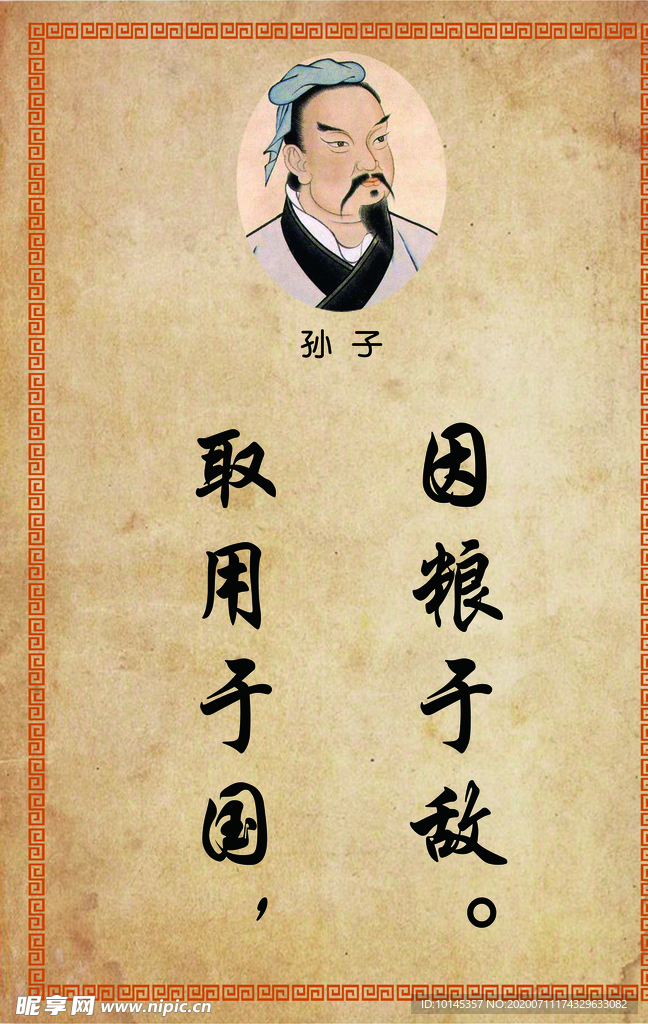 孙子
取用于国，
因粮于敌。
昵享网 www.nipic.cn
ID:10145357 NO:20200711174329633082